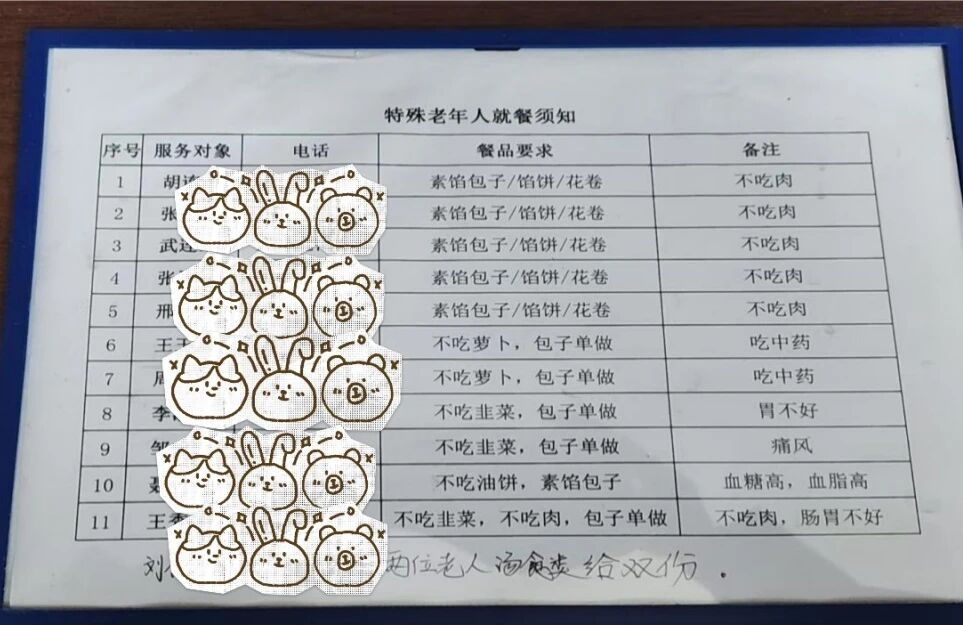 特殊老年人就餐须知
序号 服务对象 电话 餐品要求 备注
1 胡 素馅包子/馅饼/花卷 不吃肉
2 张 素馅包子/馅饼/花卷 不吃肉
3 武 素馅包子/馅饼/花卷 不吃肉
4 张 素馅包子/馅饼/花卷 不吃肉
5 邢 素馅包子/馅饼/花卷 不吃肉
6 王 不吃萝卜，包子单做 吃中药
7 不吃萝卜，包子单做 吃中药
8 李 不吃韭菜，包子单做 胃不好
9 邹 不吃韭菜，包子单做 痛风
10 聂 不吃油饼，素馅包子 血糖高，血脂高
11 王 不吃韭菜，不吃肉，包子单做 不吃肉，肠胃不好
刘 两位老人汤食类给双份．